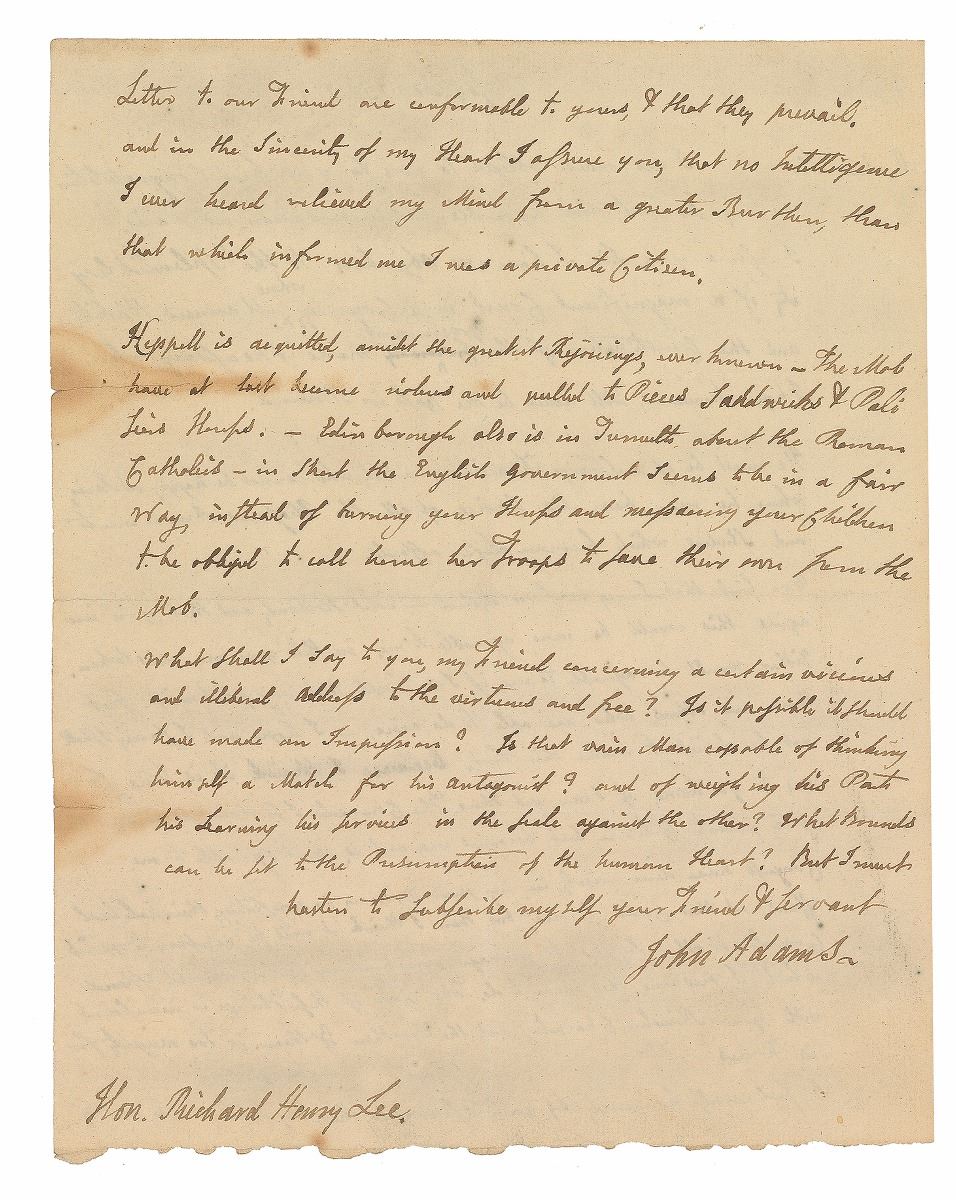 Letter to our Friend are conformable to yours, & that they prevail.
and in the Sincerity of my Heart I assure you, that no Intelligence
I ever heard relieved my Mind from a greater Burthen, than
that which informed me I was a private Citizen.
Keppell is acquitted, amidst the greatest Rejoicings, ever known — The Mob
have at last become riotous and pulled to Pieces Sandwichs & Pali
siers Houses. — Edinborough also is in Tumults about the Roman
Catholics — in short the English Government Seems to be in a fair
Way, instead of burning your Houses and massacring your Children
to be obliged to call home her Troops to save their own from the
Mob.
What shall I say to you, my Friend concerning a certain vicious
and illiberal Address to the virtuous and free? Is it possible it should
have made an Impression? Is that vain Man capable of thinking
himself a Match for his antagonist? and of weighing his Parts
his Learning his Services in the scale against the other? What Bounds
can be set to the Presumption of the human Heart? But I must
hasten to Subscribe myself your Friend & Servant
John Adams
Hon. Richard Henry Lee.